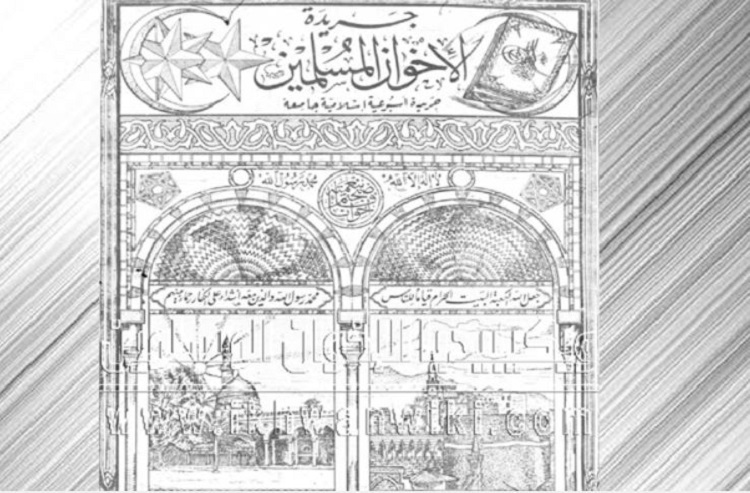 جريدة
الإخوان المسلمين
جريدة أسبوعية إسلامية جامعة
لا إله إلا الله
محمد رسول الله
جعل الله الكعبة البيت الحرام قياما للناس
محمد رسول الله والذين معه أشداء على الكفار رحماء بينهم
ويكيبيديا الإخوان المسلمين
www.ikhwanwiki.com